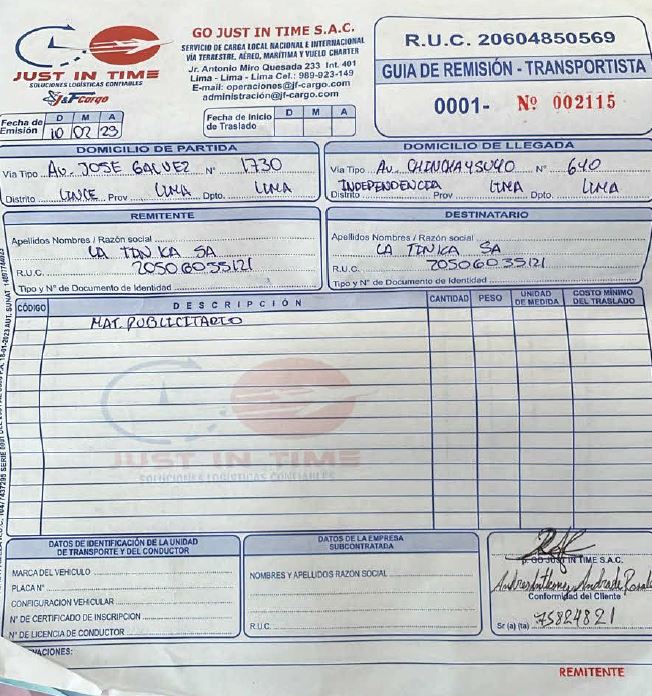 GO JUST IN TIME S.A.C.
SERVICIO DE CARGA LOCAL NACIONAL E INTERNACIONAL
VÍA TERRESTRE, AÉREO, MARÍTIMA Y VUELO CHARTER
Jr. Antonio Miro Quesada 233 Int. 401
Lima - Lima - Lima Cel.: 989-923-149
E-mail: operaciones@jf-cargo.com
administración@jf-cargo.com
JUST IN TIME
SOLUCIONES LOGÍSTICAS CONFIABLES
J&F Cargo
R.U.C. 20604850569
GUIA DE REMISIÓN - TRANSPORTISTA
0001- Nº 002115
Fecha de Emisión D M A
10 02 23
Fecha de Inicio de Traslado D M A
DOMICILIO DE PARTIDA
Vía Tipo AV. JOSE GALVEZ N° 1730
Distrito LINCE Prov LIMA Dpto. LIMA
DOMICILIO DE LLEGADA
Vía Tipo AV. CHINCHAYSUYO N° 640
Distrito INDEPENDENCIA Prov LIMA Dpto. LIMA
REMITENTE
Apellidos Nombres / Razón social
LA TINKA SA
R.U.C. 20506035121
Tipo y N° de Documento de Identidad
DESTINATARIO
Apellidos Nombres / Razón social
LA TINKA SA
R.U.C. 20506035121
Tipo y N° de Documento de Identidad
CÓDIGO DESCRIPCIÓN CANTIDAD PESO UNIDAD DE MEDIDA COSTO MÍNIMO DEL TRASLADO
MAT. PUBLICITARIO
JUST IN TIME
SOLUCIONES LOGÍSTICAS CONFIABLES
DATOS DE IDENTIFICACIÓN DE LA UNIDAD
DE TRANSPORTE Y DEL CONDUCTOR
MARCA DEL VEHICULO
PLACA N°
CONFIGURACION VEHICULAR
N° DE CERTIFICADO DE INSCRIPCION
N° DE LICENCIA DE CONDUCTOR
DATOS DE LA EMPRESA
SUBCONTRATADA
NOMBRES Y APELLIDOS RAZON SOCIAL
R.U.C.
p. GO JUST IN TIME S.A.C.
Andres Anthony Andrade Rosal
Conformidad del Cliente
Sr (a) (ta) 75824821
VACIONES:
REMITENTE